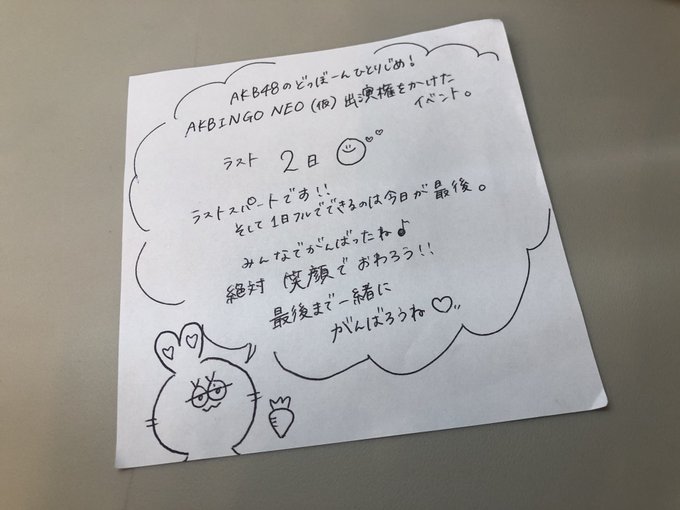 AKB48のどっぼーんひとりじめ!
AKBINGO NEO (仮) 出演権をかけた
イベント。
ラスト 2日
ラストスパートです!!
そして1日フルでできるのは今日が最後。
みんなでがんばったね♪
絶対 笑顔でおわろう!!
最後まで一緒に
がんばろうね♡